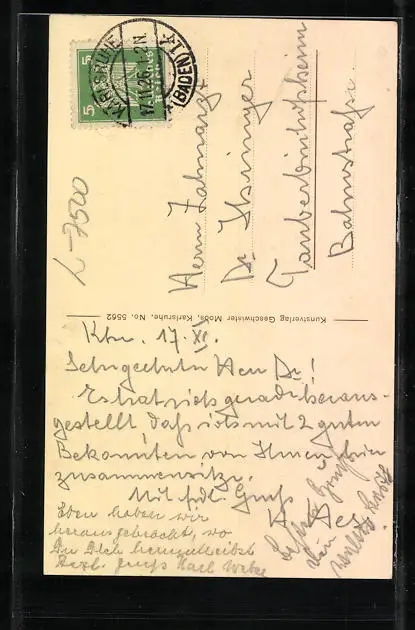 5
KARLSRUHE
17.11.26. 1-2N.
(BADEN)
Herrn Zahnarzt
Dr.
Tauberbischofsheim
Bahnstraße.
L-7500
Kunstverlag Geschwister Moos, Karlsruhe, No. 5562
Khe. 17. XI.
Sehr geehrter Herr Dr.!
Es hat sich gerade heraus-
gestellt daß ich mit 2 guten
Bekannten von Ihnen hier
zusammensitze.
Mit frdl. Gruß
Eben haben wir
herausgebracht, wo
Du Dich
Herzl. Gruß Karl